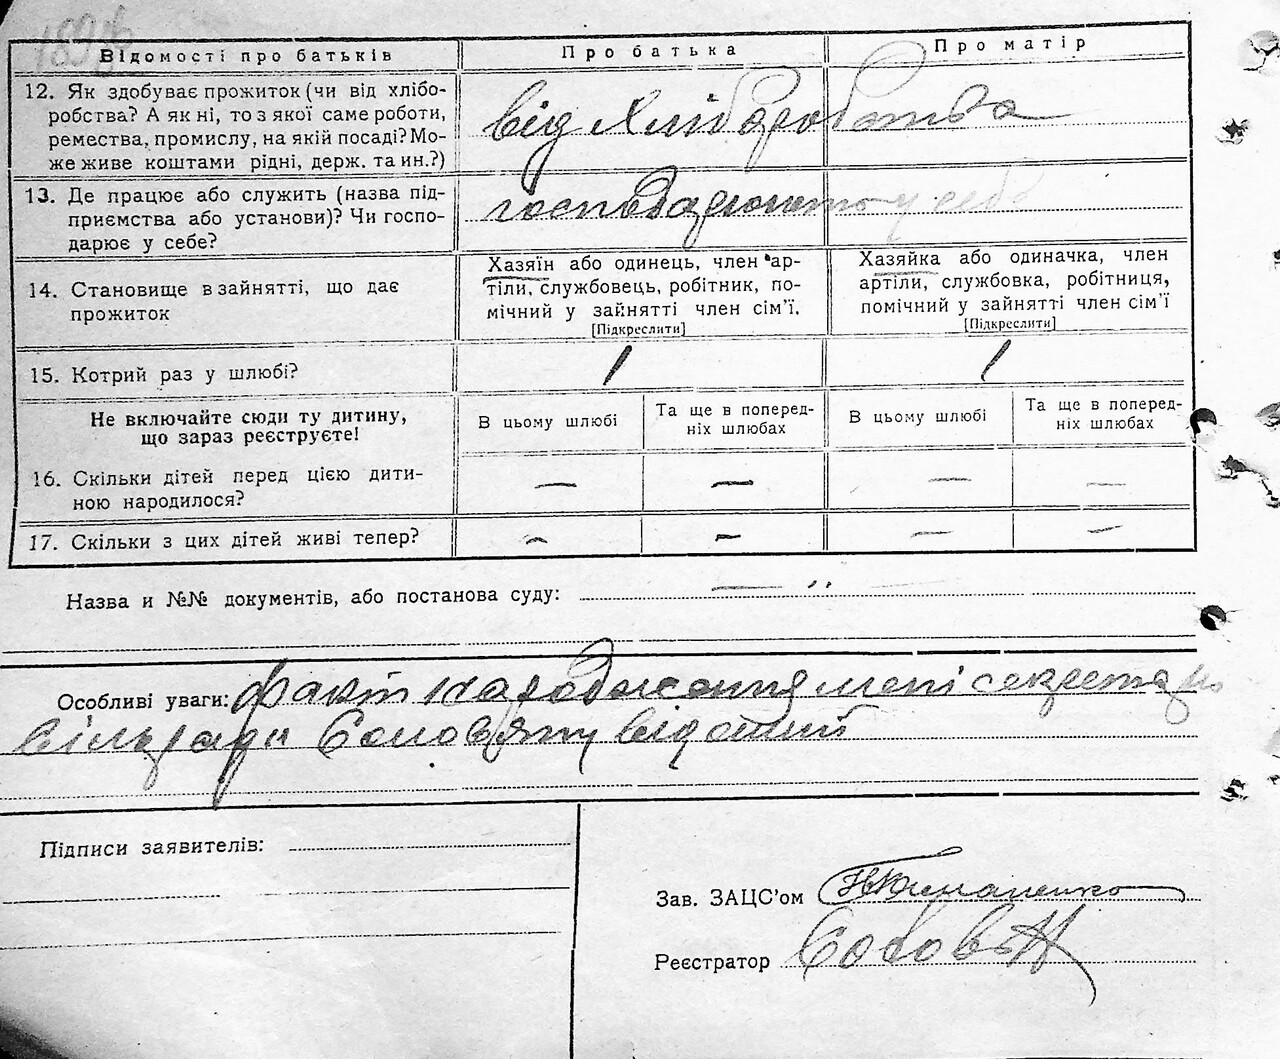 Відомості про батьків
Про батька
Про матір
12. Як здобуває прожиток (чи від хлібо-
робства? А як ні, то з якої саме роботи,
ремества, промислу, на якій посаді? Мо-
же живе коштами рідні, держ. та ин.?)
від хліборобства
13. Де працює або служить (назва під-
приємства або установи)? Чи госпо-
дарює у себе?
у себе
14. Становище в зайнятті, що дає
прожиток
Хазяїн або одинець, член ар-
тіли, службовець, робітник, по-
мічний у зайнятті член сім’ї.
[Підкреслити]
Хазяйка або одиначка, член
артіли, службовка, робітниця,
помічний у зайнятті член сім’ї
[Підкреслити]
15. Котрий раз у шлюбі?
1
1
Не включайте сюди ту дитину,
що зараз реєструєте!
В цьому шлюбі
Та ще в поперед-
ніх шлюбах
В цьому шлюбі
Та ще в поперед-
ніх шлюбах
16. Скільки дітей перед цією дити-
ною народилося?
—
—
—
—
17. Скільки з цих дітей живі тепер?
—
—
—
—
Назва и №№ документів, або постанова суду:
Особливі уваги: факт народження мені секретарю
сільради відомий
Підписи заявителів:
Зав. ЗАЦС’ом
Реєстратор